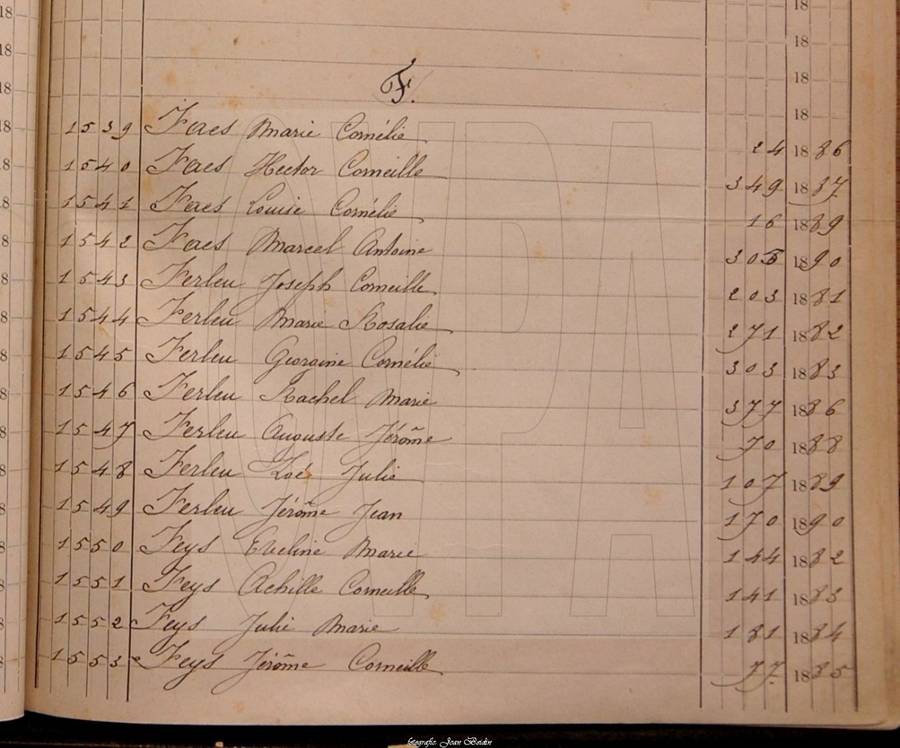 F.
1539 Faes Marie Cornélie 24 1886
1540 Faes Hector Corneille 349 1887
1541 Faes Louise Cornélie 16 1889
1542 Faes Marcel Antoine 305 1890
1543 Ferleu Joseph Corneille 203 1881
1544 Ferleu Marie Rosalie 271 1882
1545 Ferleu Georgine Cornélie 303 1883
1546 Ferleu Rachel Marie 377 1886
1547 Ferleu Auguste Jérôme 70 1888
1548 Ferleu Zoé Julie 107 1889
1549 Ferleu Jérôme Jean 170 1890
1550 Feys Eveline Marie 144 1882
1551 Feys Achille Corneille 141 1883
1552 Feys Julie Marie 181 1884
1553 Feys Jérôme Corneille 77 1885
VPA
fotografie: Jean Boidin